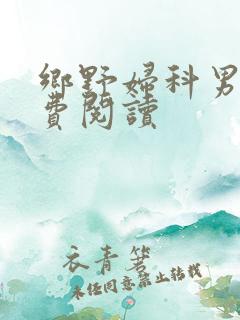 鄉野婦科男
費閱讀
衣青箬
未经同意禁止转载